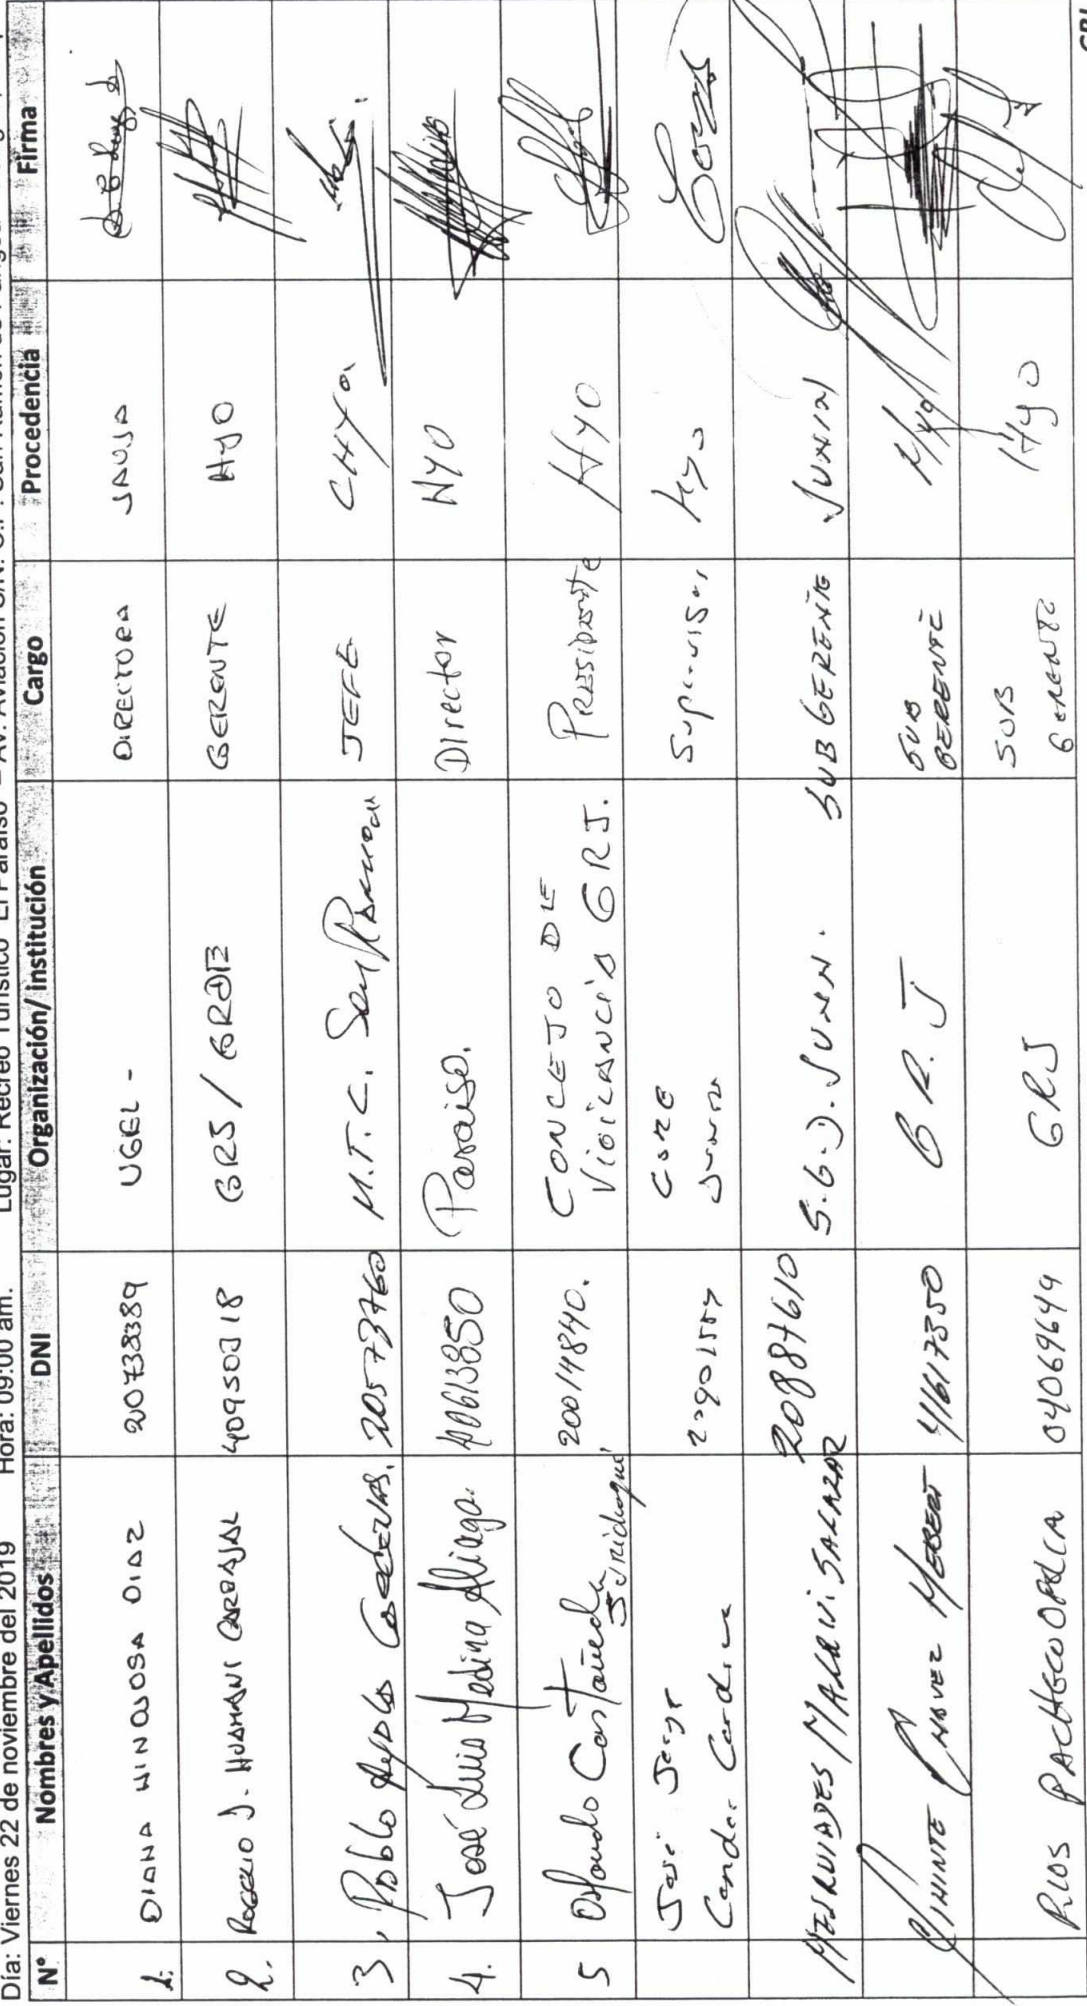 Día: Viernes 22 de noviembre del 2019 Hora: 09:00 am. Lugar: Recreo Turístico "El Paraíso" – Av. Aviación S/N.
N° Nombres y Apellidos DNI Organización/ institución Cargo Procedencia Firma
1. DIANA HINOJOSA DIAZ 20738389 UGEL - DIRECTORA JAUJA
2. ROGELIO J. HUAMANI CARBAJAL 40950318 GRJ / GRDE GERENTE HYO
3, Pablo Ayala 20573760 M.T.C. San Ramon JEFE CHYO.
4. José Luis Medina Aliaga. Paraiso. Director HYO
5 Orlando Castañeda 20014840. CONCEJO DE Presidente HYO
VIGILANCIA GRJ.
José Jorge Junin Supervisor Hyo
Condor
MALLAUI SALAZAR 20887610 S.G.D. JUNIN. SUB GERENTE JUNIN
CHAVEZ HEBERT 41617350 G.R.J SUB GERENTE Hyo
RIOS PACHECO 04069649 GRJ SUB GERENTE Hyo